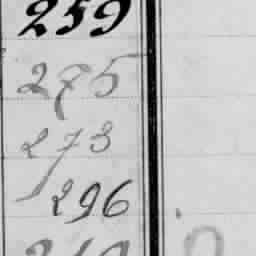 259
275
273
296